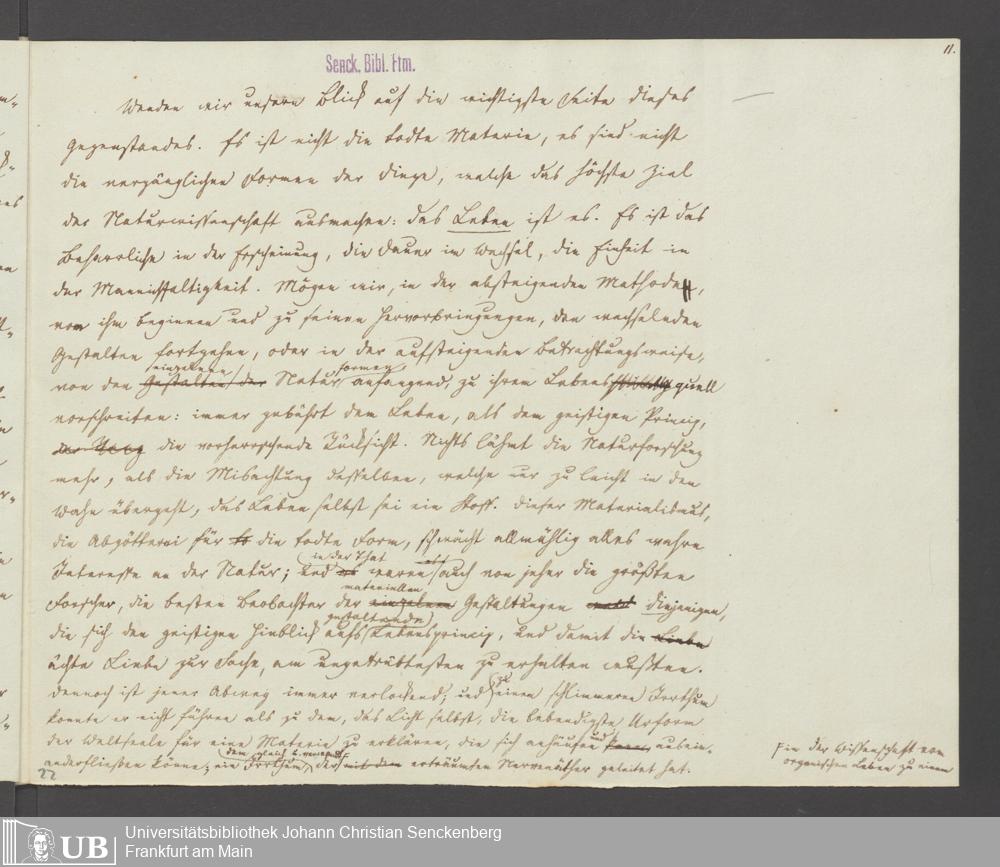 11.
Senck. Bibl. Ffm.
Wenden wir unsern Blick auf die wichtigste Seite dieses
Gegenstandes. Es ist nicht die todte Materie, es sind nicht
die vergänglichen Formen der Dinge, welche das höchste Ziel
der Naturwissenschaft ausmachen: das Leben ist es. Es ist das
Beharrliche in der Erscheinung, die Dauer im Wechsel, die Einheit in
der Mannichfaltigkeit. Mögen wir, in der absteigenden Methode,
von ihm beginnen und zu seinen Hervorbringungen, den wechselnden
Gestalten fortgehen, oder in der aufsteigenden Betrachtungsweise,
einzelnen formen
von den Gestalten der Natur anfangend, zu ihrem Lebensquell
vorschreiten: immer gebührt dem Leben, als dem geistigen Princip,
die vorherrschende Rücksicht. Nichts lähmt die Naturforschung
mehr, als die Misachtung desselben, welche nur zu leicht in den
Wahn übergeht, das Leben selbst sei ein Stoff. Dieser Materialismus,
die Abgötterei für die todte Form, schwächt allmählig alles wahre
in der That
Interesse an der Natur; und waren auch von jeher die größten
materiellen
Forscher, die besten Beobachter der einzelnen Gestaltungen diejenigen,
gestaltende
die sich den geistigen Hinblick aufs Lebensprincip, und damit die Liebe
ächte Liebe zur Sache, am ungetrübtesten zu erhalten wußten.
Dennoch ist jener Abweg immer verlockend; und zu einem schlimmeren Irrthum
konnte er nicht führen als zu dem, das Licht selbst, die lebendigste Urform
der Weltseele für eine Materie zu erklären, die sich anhäufen und ausein-
anderfließen könne, ein Irrthum, der mit dem erträumten Nervenäther geleitet hat.
in der Wissenschaft vom
organischen Leben zu einem
22
UB
Universitätsbibliothek Johann Christian Senckenberg
Frankfurt am Main